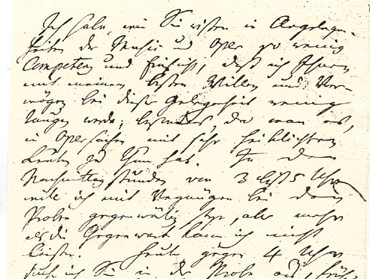 Ich habe, wie Sie wissen in Angelegen-
heiten der Musik und Oper so wenig
Competenz und Einsicht, daß ich Ihnen
mit meinem besten Willen und Ver-
mögen bei dieser Gelegenheit wenig
taugen werde; besonders, da man es,
in Opersachen mit sehr
Leuten zu thun hat. In den
Nachmittagsstunden von 3 bis 5 Uhr
will ich mit Vergnügen bei den
Probe gegenwärtig seyn, aber mehr
als die Gegenwart kann ich nicht
leisten. Heute gegen 4 Uhr
Sie in der Probe